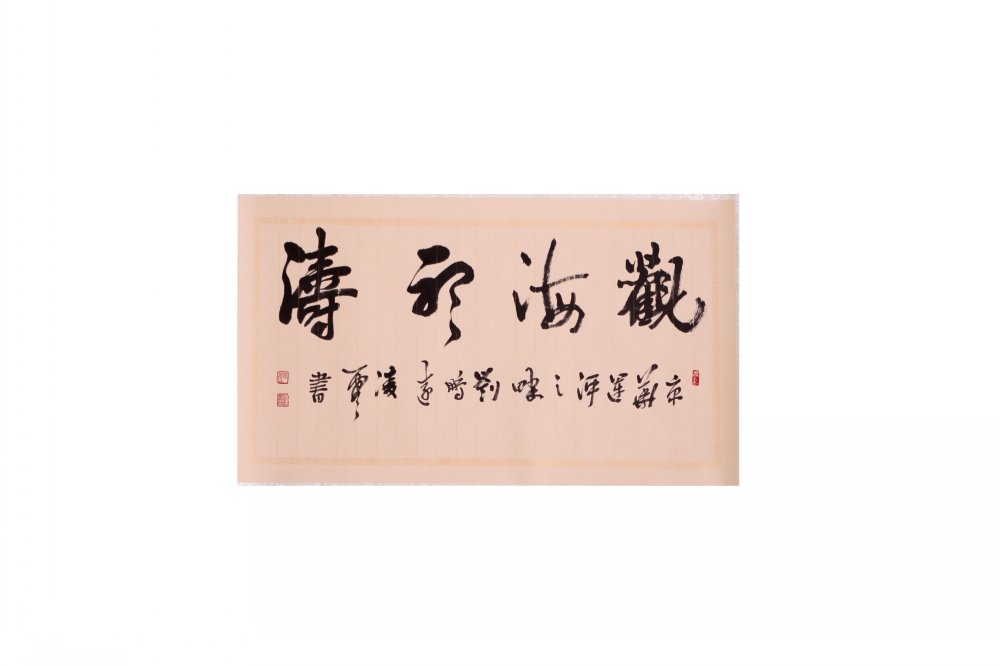 觀海聽濤
京華運河之畔劉時遠凌雲書